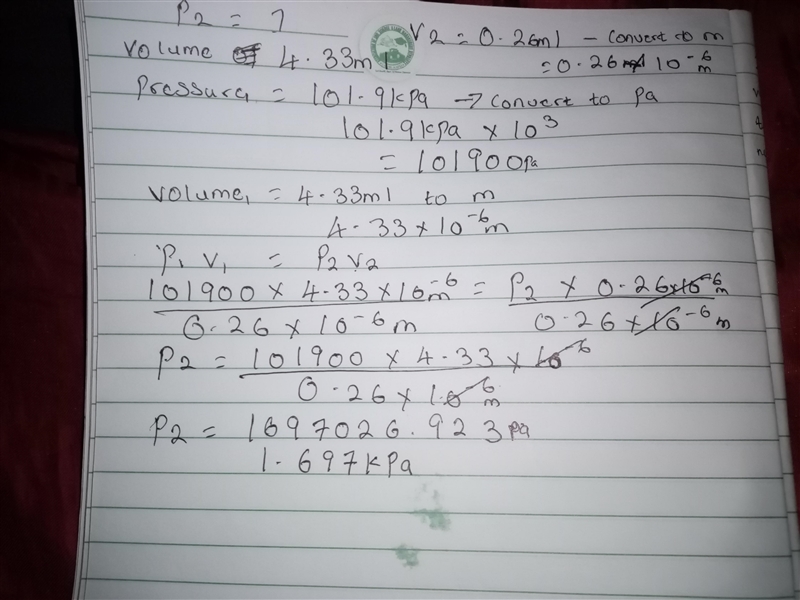 P2 = ?
V2 = 0.26ml - Convert to m
= 0.26 x 10⁻⁶ m
Volume 4.33ml
Pressure₁ = 101.9kpa → Convert to pa
101.9kpa x 10³
= 101900pa
Volume₁ = 4.33ml to m
4.33 x 10⁻⁶m
P₁ V₁ = P₂ V₂
101900 x 4.33 x 10⁻⁶m = P2 x 0.26x10⁻⁶m
0.26 x 10⁻⁶ m 0.26 x 10⁻⁶ m
P2 = 101900 x 4.33 x 10⁻⁶
0.26 x 10⁻⁶ m
P2 = 1697026.923pa
1.697kPa